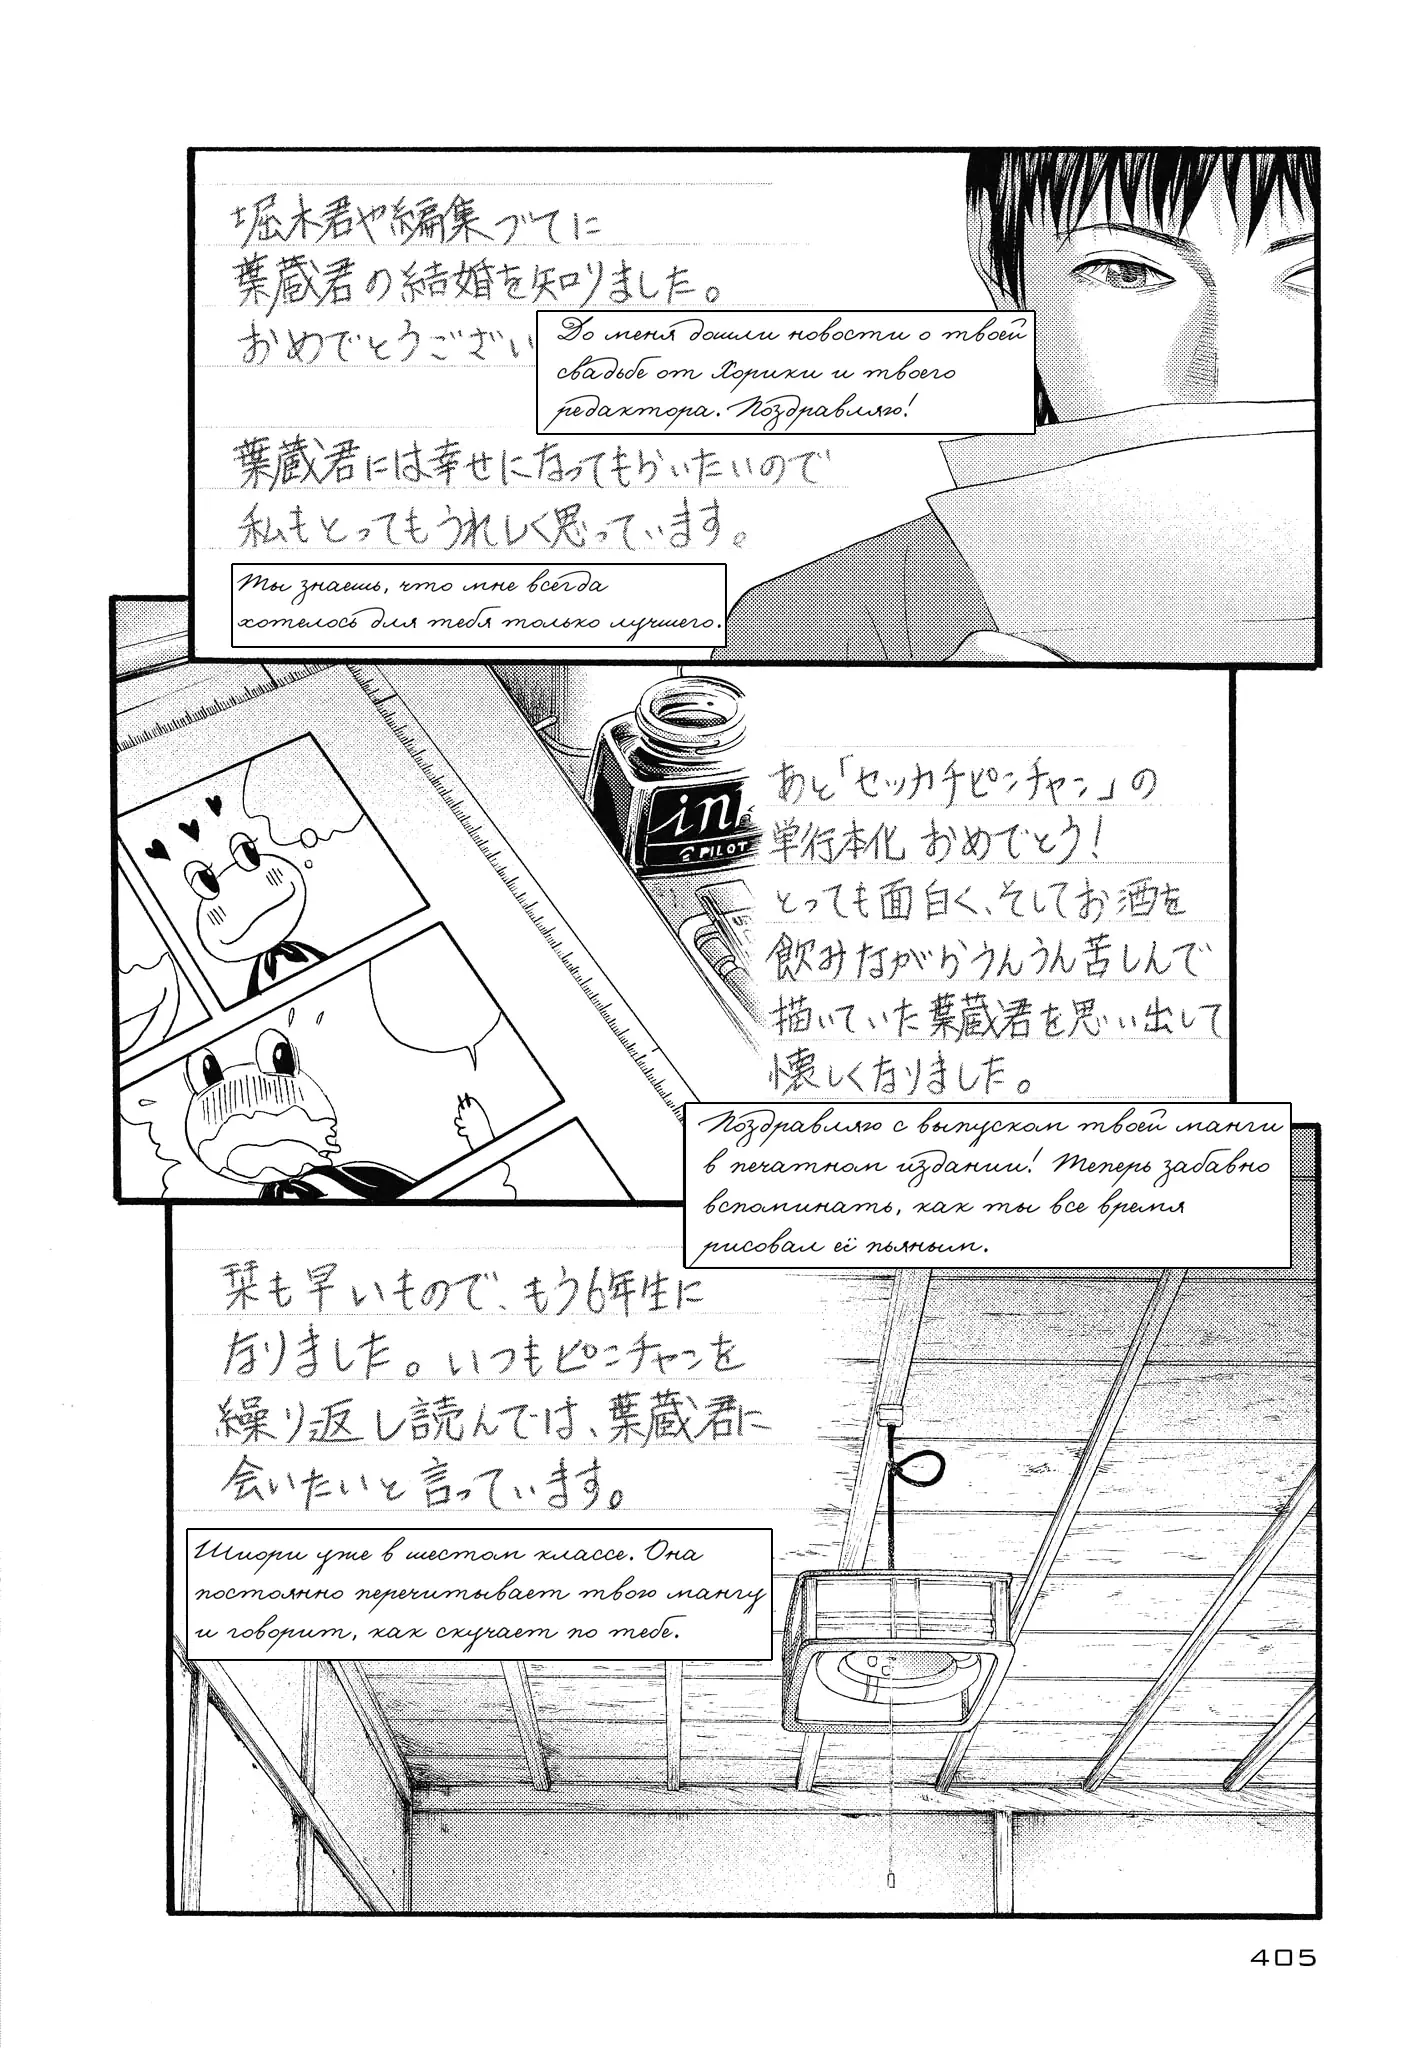 堀木君や編集づてに
葉蔵君の結婚を知りました。
おめでとうござい
До меня дошли новости о твоей
свадьбе от Хорики и твоего
редактора. Поздравляю!
葉蔵君には幸せになってもらいたいので
私もとってもうれしく思っています。
Ты знаешь, что мне всегда
хотелось для тебя только лучшего.
ink
PILOT
あと「セッカチピンチャン」の
単行本化 おめでとう!
とっても面白く、そしてお酒を
飲みながらうんうん苦しんで
描いていた葉蔵君を思い出して
懐しくなりました。
Поздравляю с выпуском твоей манги
в печатном издании! Теперь забавно
вспоминать, как ты все время
рисовал её пьяным.
栞も早いもので、もう6年生に
なりました。いつもピンチャンを
繰り返し読んでは、葉蔵君に
会いたいと言っています。
Шиори уже в шестом классе. Она
постоянно перечитывает твою мангу
и говорит, как скучает по тебе.
405